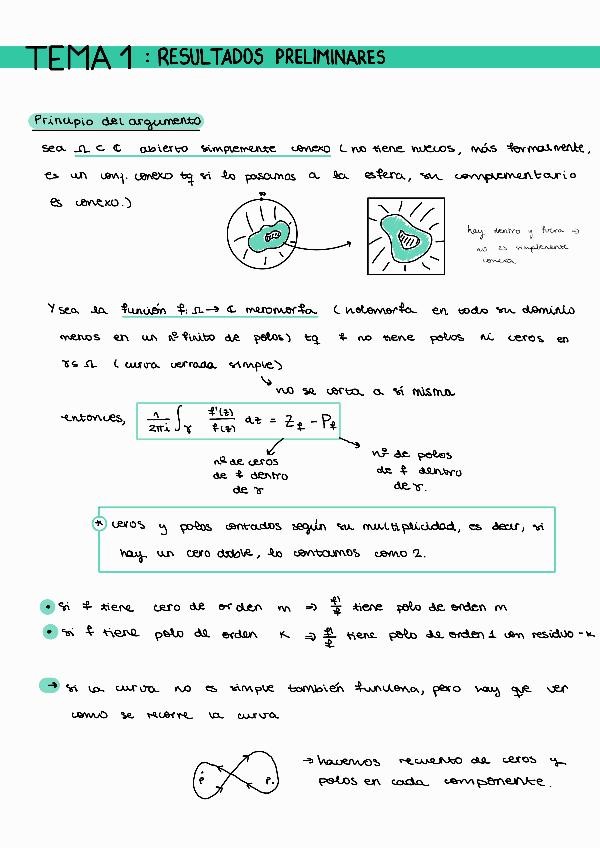 TEMA 1 : RESULTADOS PRELIMINARES
Principio del argumento
sea Ω ⊂ ℂ abierto simplemente conexo (no tiene huecos, más formalmente,
es un conj. conexo tq si lo pasamos a la esfera, su complementario
es conexo.)
hay dentro y fuera ⇒
no es simplemente
conexa
Y sea la función f: Ω → ℂ meromorfa (holomorfa en todo su dominio
menos en un nº finito de polos) tq f no tiene polos ni ceros en
γ ⊆ Ω (curva cerrada simple)
no se corta a sí misma
entonces, 1/2πi ∫γ f'(z)/f(z) dz = Zf - Pf
nº de ceros
de f dentro
de γ
nº de polos
de f dentro
de γ.
* ceros y polos contados según su multiplicidad, es decir, si
hay un cero doble, lo contamos como 2.
• si f tiene cero de orden m ⇒ f'/f tiene polo de orden m
• si f tiene polo de orden k ⇒ f'/f tiene polo de orden 1 con residuo -k
→ si la curva no es simple también funciona, pero hay que ver
como se recorre la curva
→ hacemos recuento de ceros y
polos en cada componente.